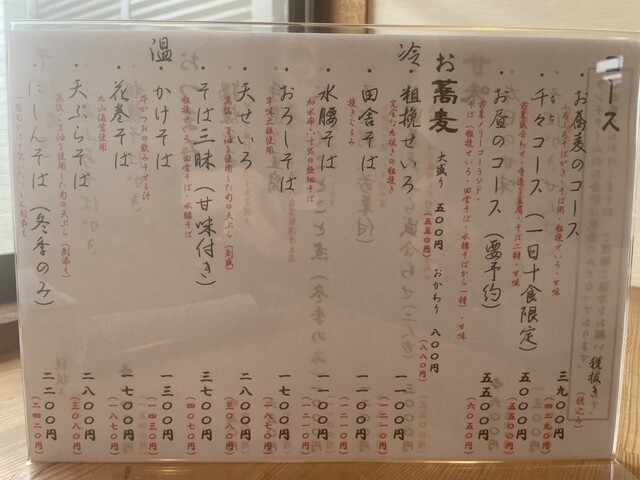 コース
税抜き
(税込み)
・お蕎麦のコース 三九〇〇円
(四二九〇円)
・千々コース(一日十食限定) 五〇〇〇円
(五五〇〇円)
・お昼のコース(要予約) 五五〇〇円
(六〇五〇円)
お蕎麦 大盛り 五〇〇円 おかわり 八〇〇円
(五五〇円) (八八〇円)
冷
・粗挽せいろ 一一〇〇円
(一二一〇円)
・田舎そば 一一〇〇円
挽きぐるみ (一二一〇円)
・水腰そば 一一〇〇円
(一二一〇円)
・おろしそば 一七〇〇円
辛味大根使用 (一八七〇円)
・天せいろ 二八〇〇円
(三〇八〇円)
・そば三昧(甘味付き) 三七〇〇円
粗挽せいろ・田舎そば・水腰そば (四〇七〇円)
温
・かけそば 一三〇〇円
(一四三〇円)
・花巻そば 一七〇〇円
(一八七〇円)
・天ぷらそば 二八〇〇円
(三〇八〇円)
・にしんそば(冬季のみ) 二二〇〇円
(二四二〇円)